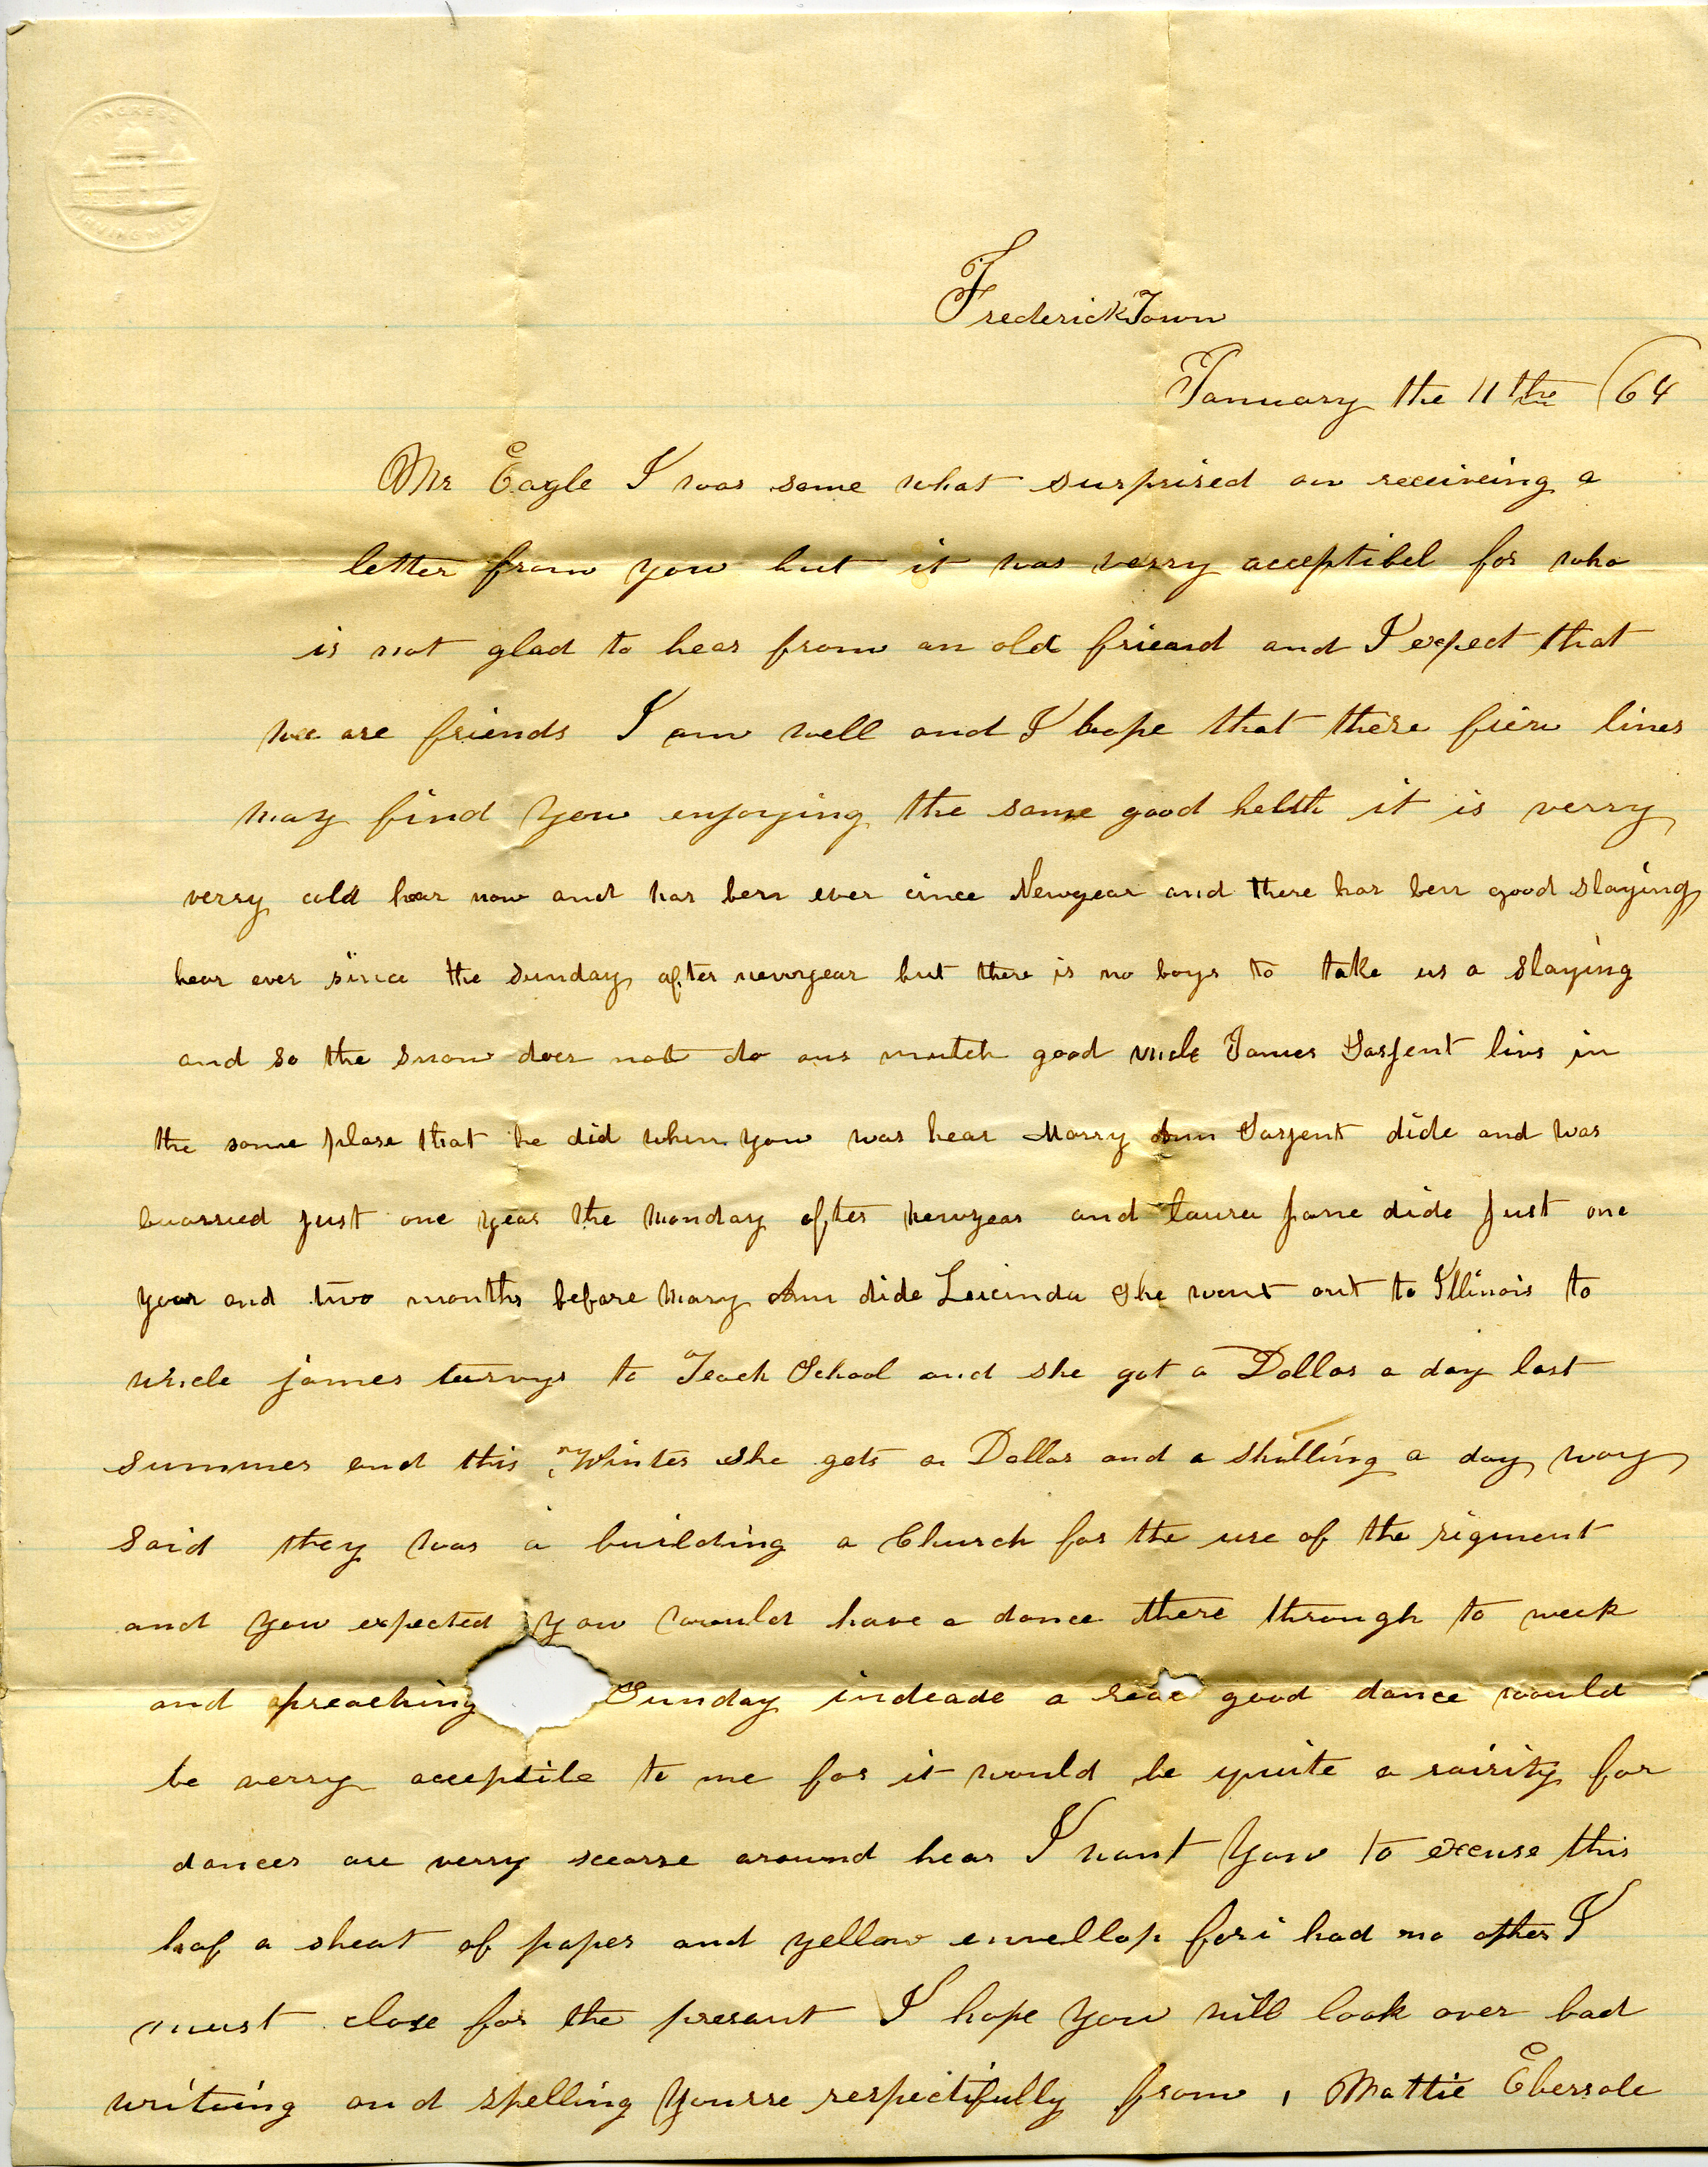 CONGRESS
IRVING MILL
FrederickTown
January the 11the /64
Mr Eagle I was some what surprised on receiveing a
letter from you but it was verry acceptibel for who
is not glad to hear from an old frieand and I expect that
wee are friends I am well and I hope that these fiew lines
may find you enjoying the same good helth it is verry
verry cold hear now and has ben ever cince Newyear and there has ben good slaying
hear ever since the sunday after newyear but there is no boys to take us a slaying
and so the snow does not do ous mutch good uncle James Sarjent livs in
the same plase that he did when you was hear Marry Ann Sarjent dide and was
buarried just one year the monday after newyear and laura jane dide just one
year and two months before mary Ann dide Lucinda she went out to Illinois to
uncle james turnys to Teach School and she got a Dollar a day last
summer and this Whinter she gets a Dollar and a shilling a day way
said they was a building a Church for the use of the rigment
and you expected you would have a dance there through to week
and apreaching Sunday indeade a good dance would
be verry acceptile to me for it would be quite a rairity for
dances are verry scearse around hear I want you to excuse this
haf a sheat of paper and yellow envellop for i had no other I
must close for the presant I hope you will look over bad
writeing and spelling yourse respectifully from , Mattie Ebersole